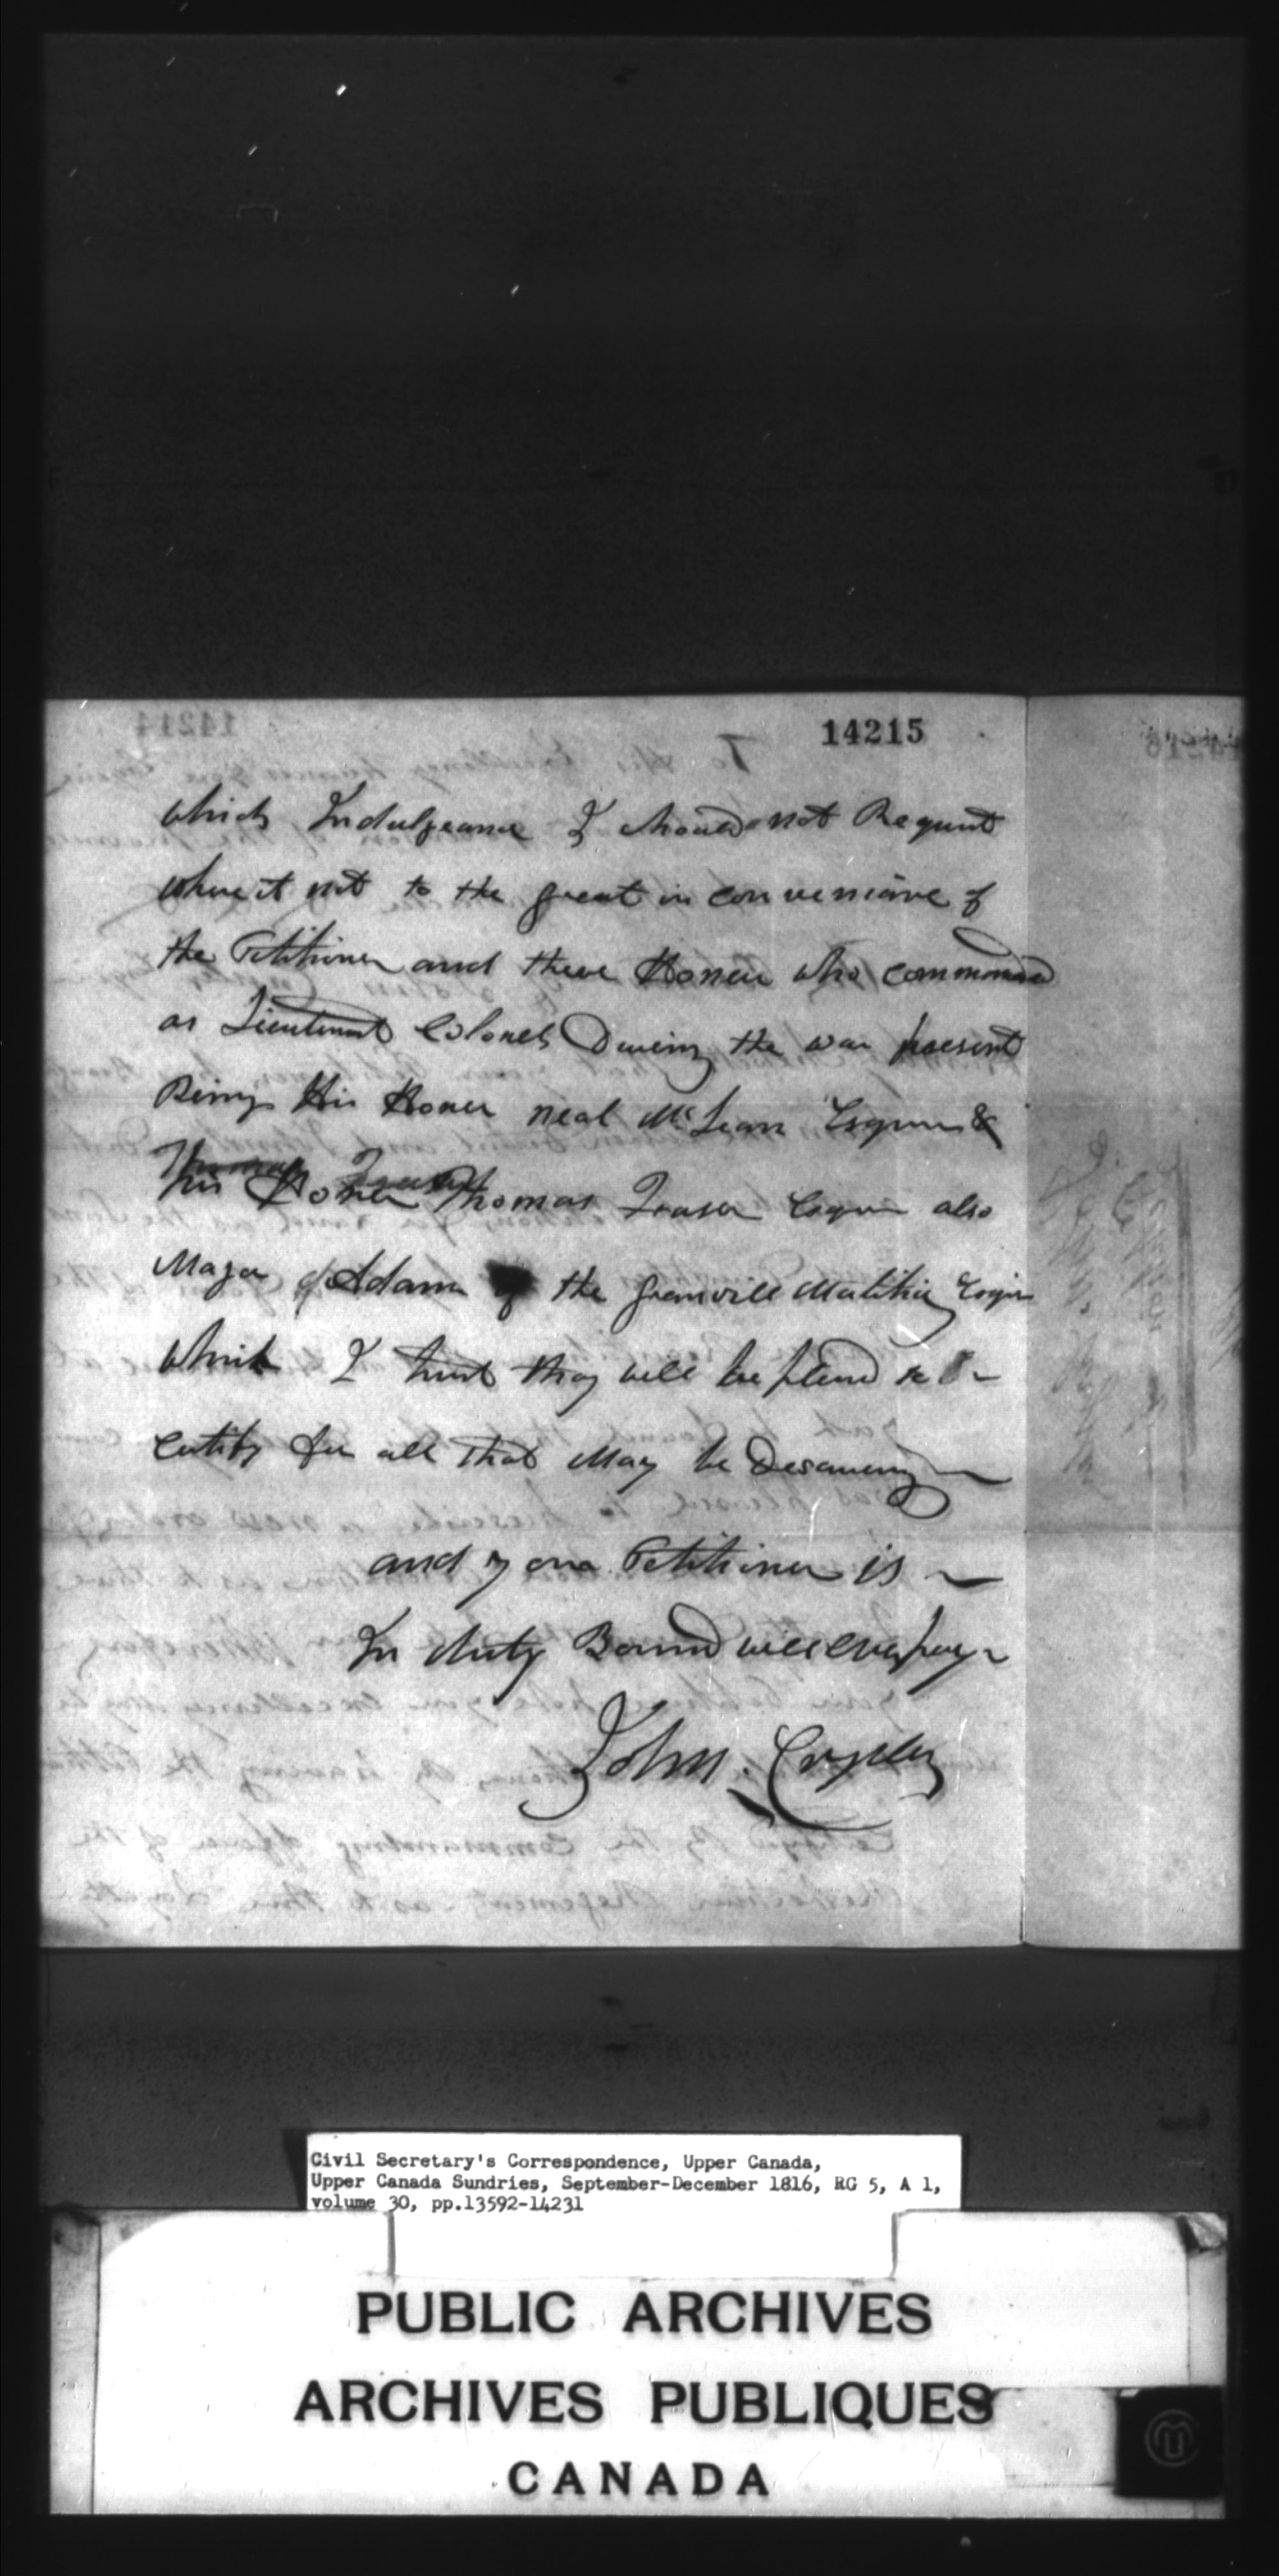 14215
which Indulgeance I should not Request
where it not to the great in conveniance of
the Petitioner and there Honeur who commanded
as Lieutenant Colonels Dureing the war present
Being His Honer Neal McLean Esquire &
his Honer Thomas Fraser Esquire also
Major Adams of the Granvill Malitia Esqir
which I trust they will be pleased to
Certify for all that May be Deserveing
and your Petitioner is
In duty Bound will ever pray
John Crysler
Civil Secretary's Correspondence, Upper Canada,
Upper Canada Sundries, September-December 1816, RG 5, A 1,
volume 30, pp.13592-14231
PUBLIC ARCHIVES
ARCHIVES PUBLIQUES
CANADA